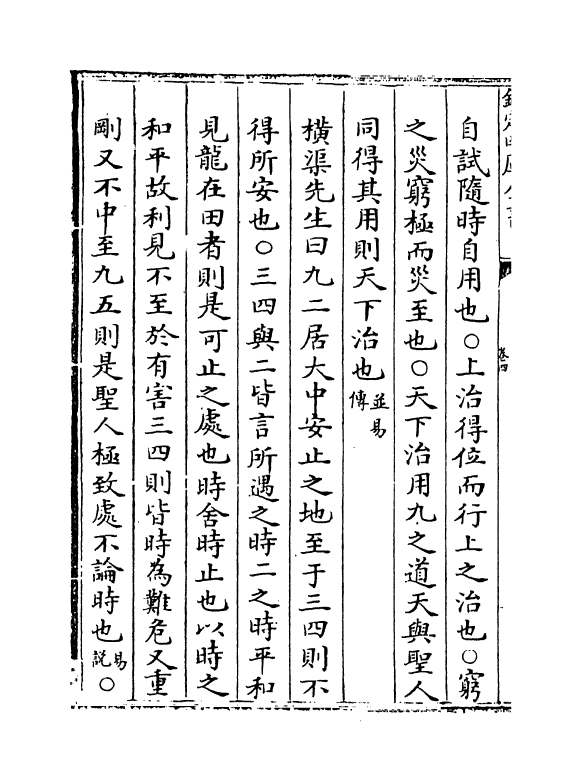 欽定四庫全書
卷四
自試隨時自用也○上治得位而行上之治也○窮
之災窮極而災至也○天下治用九之道天與聖人
同得其用則天下治也並易傳
橫渠先生曰九二居大中安止之地至于三四則不
得所安也○三四與二皆言所遇之時二之時平和
見龍在田者則是可止之處也時舍時止也以時之
和平故利見不至於有害三四則皆時為難危又重
剛又不中至九五則是聖人極致處不論時也易說○